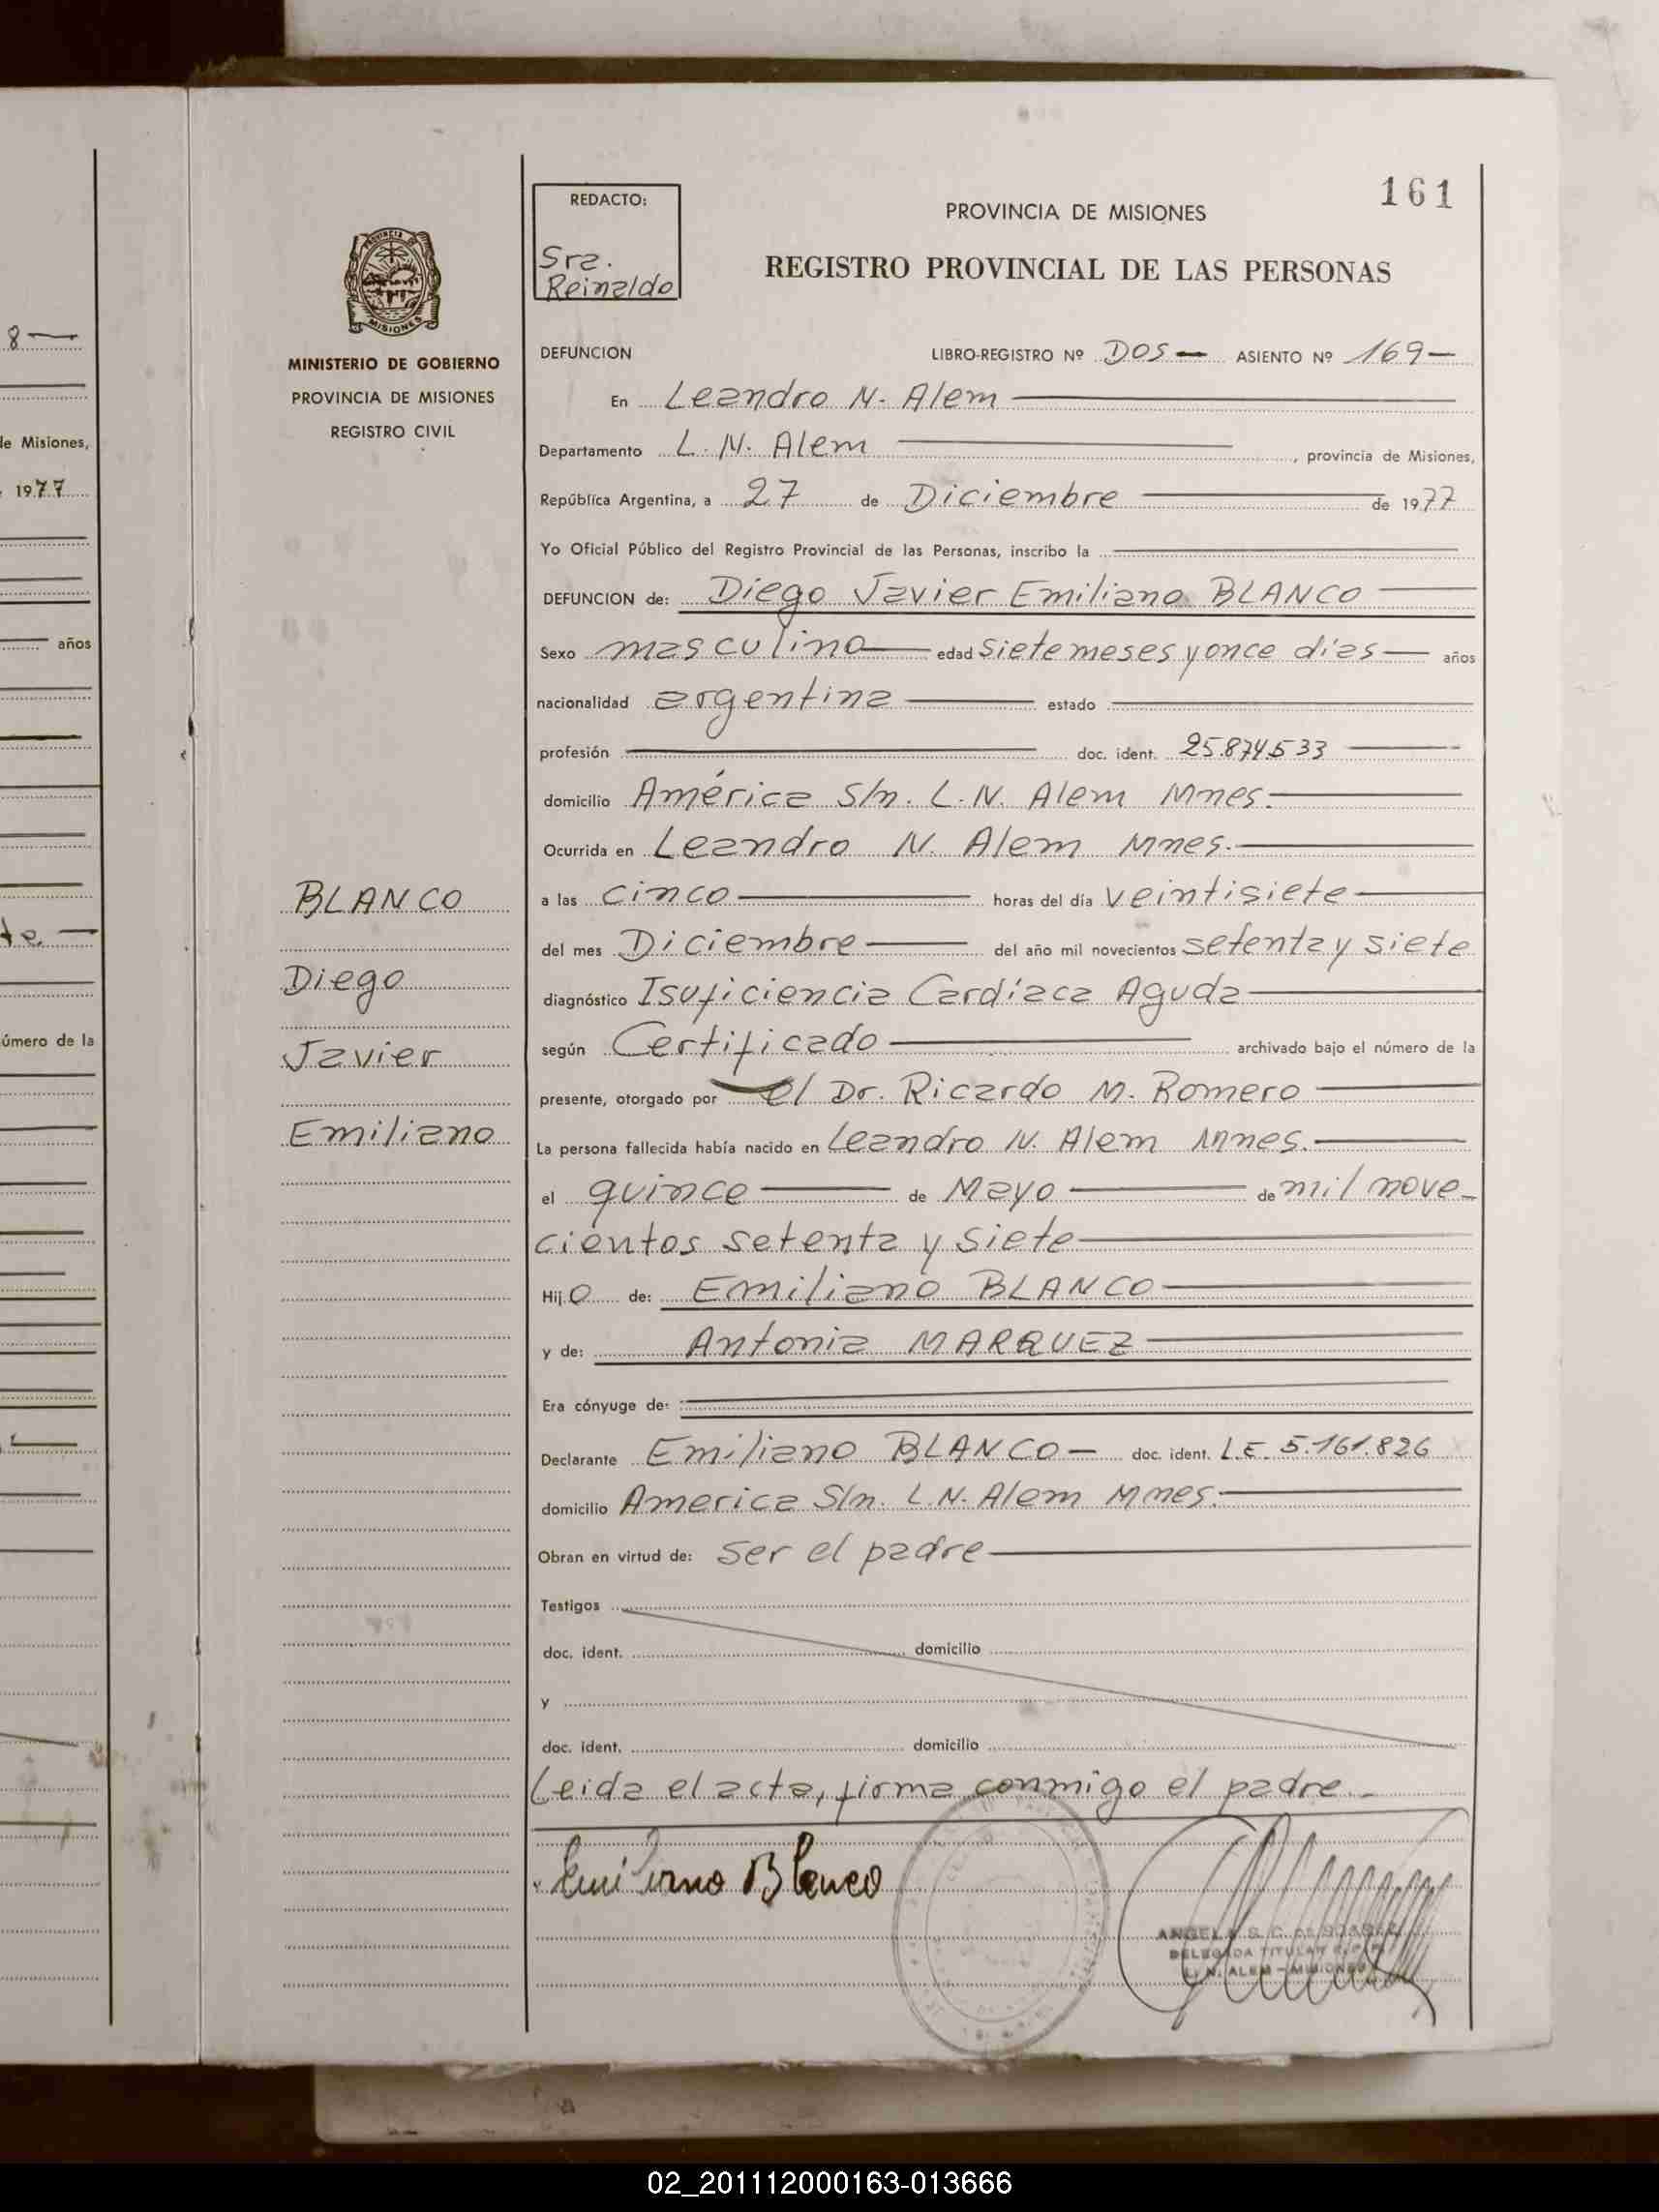 8
de Misiones,
1977
años
te.
número de la
PROVINCIA DE
MISIONES
MINISTERIO DE GOBIERNO
PROVINCIA DE MISIONES
REGISTRO CIVIL
BLANCO
Diego
Javier
Emiliano
REDACTO:
Sra.
Reinaldo
161
PROVINCIA DE MISIONES
REGISTRO PROVINCIAL DE LAS PERSONAS
DEFUNCION LIBRO-REGISTRO Nº DOS ASIENTO Nº 169
En Leandro N. Alem
Departamento L. N. Alem, provincia de Misiones,
República Argentina, a 27 de Diciembre de 1977
Yo Oficial Público del Registro Provincial de las Personas, inscribo la
DEFUNCION de: Diego Javier Emiliano BLANCO
Sexo masculino edad siete meses y once días años
nacionalidad argentina estado
profesión doc. ident. 25.874.533
domicilio América S/n. L.N. Alem Mnes.
Ocurrida en Leandro N. Alem Mnes.
a las cinco horas del día veintisiete
del mes Diciembre del año mil novecientos setenta y siete
diagnóstico Isuficiencia Cardíaca Aguda
según Certificado archivado bajo el número de la
presente, otorgado por el Dr. Ricardo M. Romero
La persona fallecida había nacido en Leandro N. Alem Mnes.
el quince de Mayo de mil nove-
cientos setenta y siete
Hijo de: Emiliano BLANCO
y de: Antonia MARQUEZ
Era cónyuge de:
Declarante Emiliano BLANCO doc. ident. L.E. 5.161.826
domicilio America S/n. L.N. Alem Mnes.
Obran en virtud de: ser el padre
Testigos
doc. ident. domicilio
y
doc. ident. domicilio
Leida el acta, firma conmigo el padre.-
Emiliano Blanco
ANGELA S. C. DE
DELEGADA TITULAR R.P.P.
L. N. ALEM - MISIONES
02_201112000163-013666